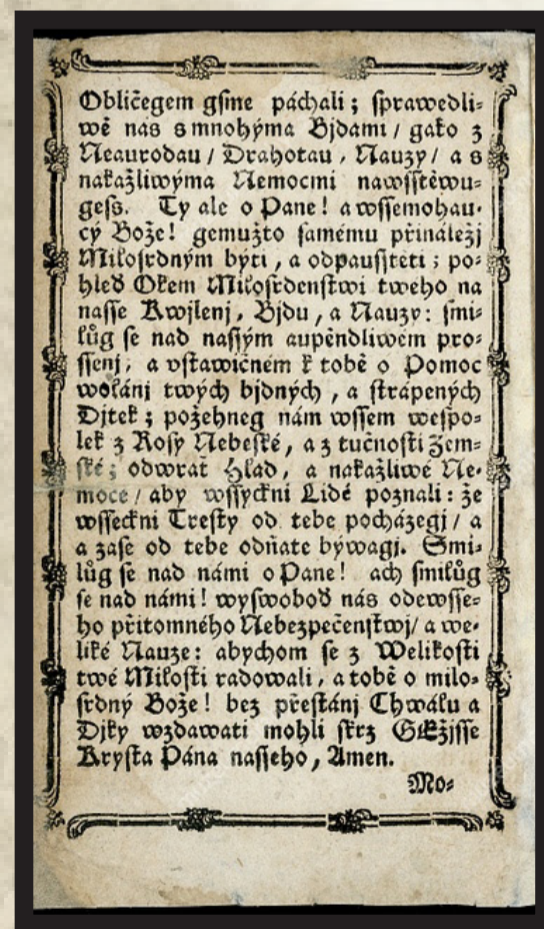 Obličegem gſme páchali ; ſprawedli⸗
wě nás s mnohýma Bjdami / gako z
Neaurodau / Drahotau , Nauzy / a s
nakažliwýma Nemocmi nawſſtěwu⸗
geſs. Ty ale o Pane ! a wſſemohau⸗
cý Bože ! gemužto ſamému přináležj
Miloſrdným býti , a odpauſſteti ; po⸗
hleď Okem Miloſrdenſtwi tweho na
naſſe Kwjlenj , Bjdu , a Nauzy : ſmi⸗
lůg ſe nad naſſým aupěndliwém pro⸗
ſſenj , a vſtawičném k tobě o Pomoc
wolánj twých bjdných , a ſtrápených
Djtek ; požehneg nám wſſem weſpo⸗
lek z Roſy Nebeſké , a z tučnoſti Zem⸗
ſké ; odwrať Hlad , a nakažliwé Ne⸗
moce / aby wſſyckni Lidé poznali : že
wſſeckni Treſty od tebe pocházegj / a
a zaſe od tebe odňate býwagj. Smi⸗
lůg ſe nad námi o Pane ! ach ſmilůg
ſe nad námi ! wyſwoboď nás odewſſe⸗
ho přitomného Nebezpečenſtwj / a we⸗
liké Nauze : abychom ſe z Welikoſti
twé Miloſti radowali , a tobě o milo⸗
ſrdný Bože ! bez přeſtánj Chwálu a
Djky wzdawati mohli ſkrz GEžjſſe
Kryſta Pána naſſeho , Amen.
Mo⸗